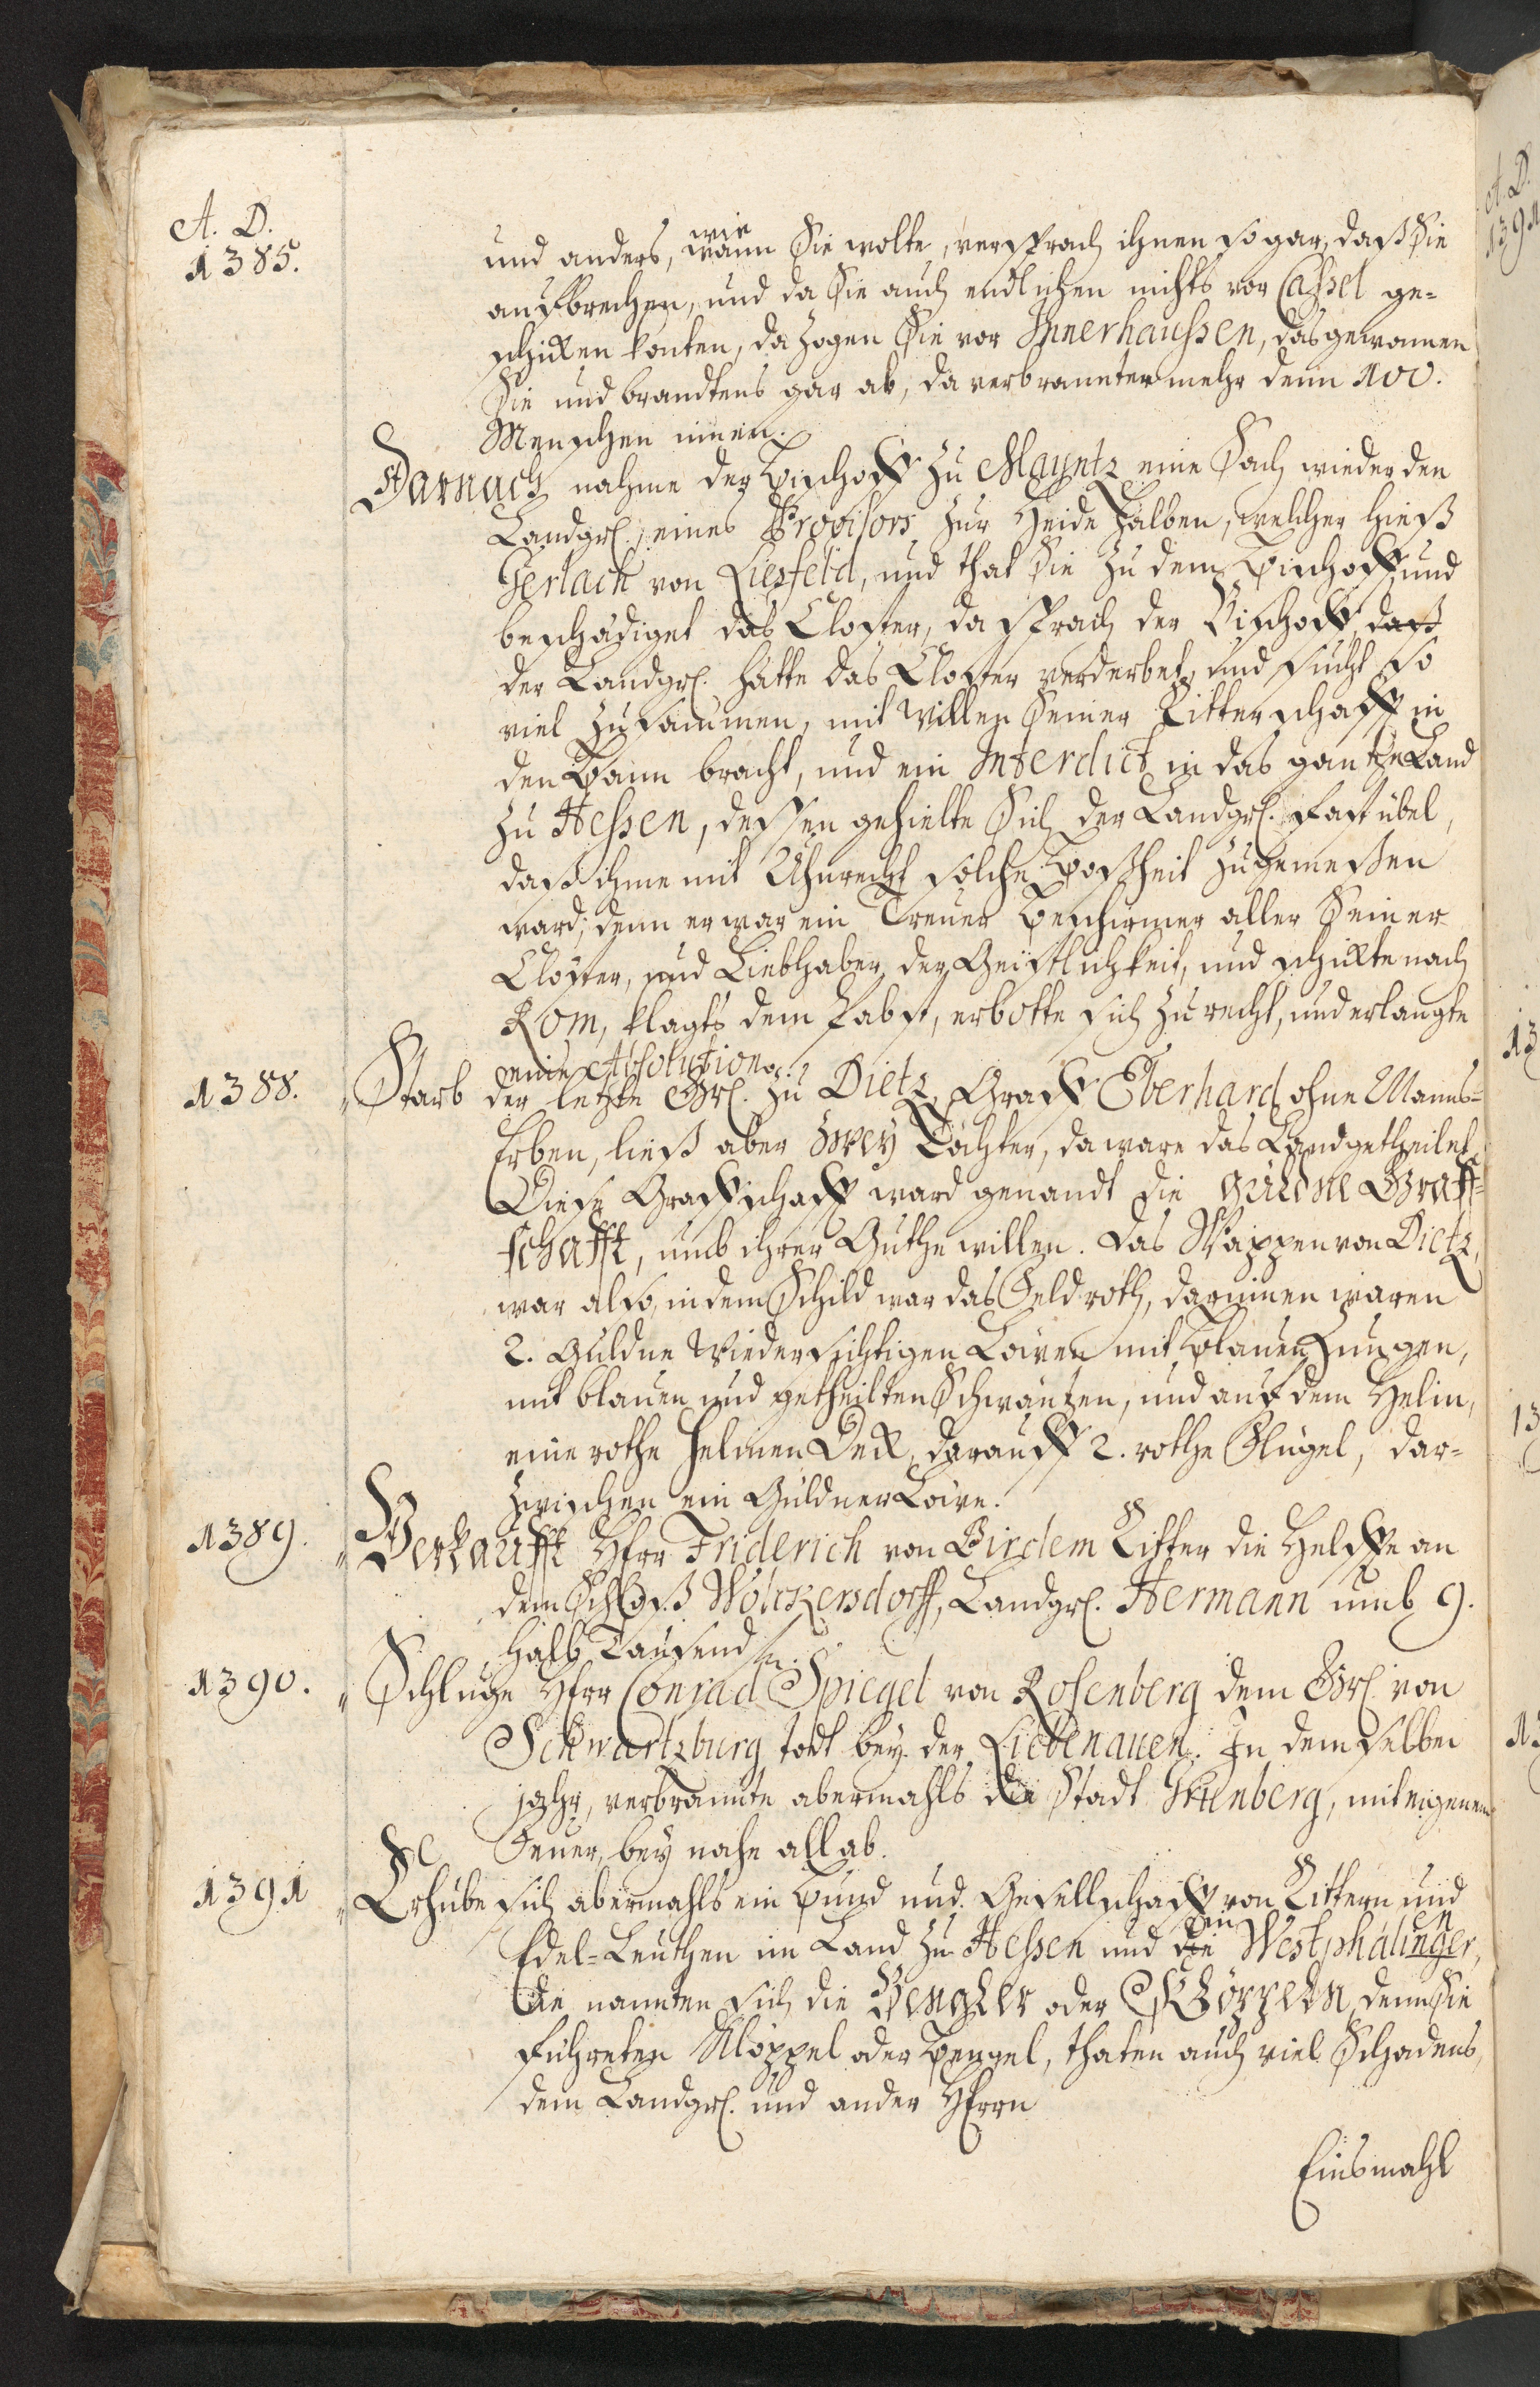 A. D.
1385.
und anders, wann wie Sie wolte, versprach ihnen sogar, daß Sie
aufbrechen, und da Sie auch endlichen nichts vor Cassel ge=
schicken konten, da zogen Sie vor Innerhaussen, das gewannen
Sie und brandtens gar ab, da verbrannten mehr denn 100.
Menschen innen.
Darnach nahme der Bischoff zu Mayntz eine Sach wieder den
Landgr. eines Provisors zur Heide halben, welcher hieß
Gerlach von Liesfeld, und that Sie zu dem Bischoff und
beschädiget das Closter, da sprach der Bischoff, daß
der Landgr. hätte das Closter verderbet, und sucht so
viel zusammen, mit willen Seiner Ritterschafft in
den Bann bracht, und ein Interdict in das gantze Land
zu Hessen, dessen gehielte Sich der Landgr. fast übel,
daß ihme mit Uhnrecht solche Boßheit zugemessen
ward; denn er war ein Treuer Beschirmer aller Seiner
Closter, und Liebhaber der Geistlichkeit, und schickte nach
Rom, klagts dem Pabst, erbotte sich zu recht, und erlangte
eine Absolution.
1388. Starb der letzte Gr. zu Dietz, Graff Eberhard ohne Manns=
Erben, ließ aber zwey Töchter, da ware das Land getheilet,
Diese Graffschafft ward genandt die güldne Graff=
schafft, umb ihrer Güthe willen. Das Wappen von Dietz,
war also, in dem Schild war das Feld roth, darinnen waren
2. Guldne wiedersichtigen Löwen mit Blauen Zungen,
mit blauen und getheilten Schwäntzen, und auf dem Helm,
eine rothe Helmen Deck, darauff 2. rothe Flügel, dar=
zwischen ein Guldner Löwe.
1389. Verkaufft Herr Friderich von Birdem Ritter die Helffte an
dem Schloß Wolckersdorff, Landgr. Hermann umb 9.
halb Tausend fl.
1390. Schluge Herr Conrad Spiegel von Rosenberg dem Gr. von
Schwartzburg todt bey der Liebenauen. In demselben
jahr, verbrannte abermahls die Stadt Grünberg, mit eigenem
Feuer, bey nahe all ab.
1391 Erhube sich abermahls ein Bund und Gesellschafft von Rittern und
Edel-Leuthen im Land zu Hessen und die in Westphalinger en,
die nannten sich die Bengler oder Klöppeln, denn Sie
führeten Klöppel oder Bengel, thaten auch viel Schadens,
dem Landgr. und ander Herrn
Einsmahl